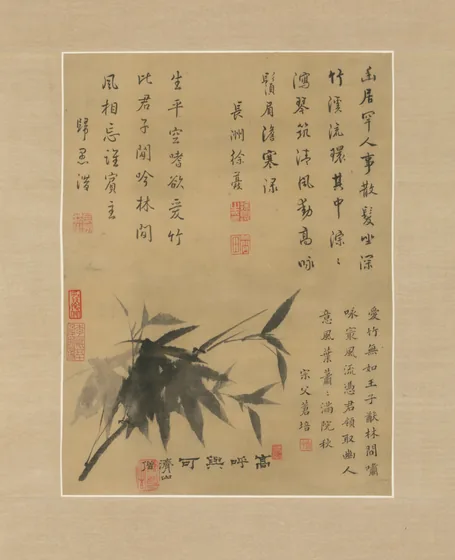 幽居罕人事散髮坐深
竹溪流環其中淙〻
瀉琴筑清風動高咏
鬚眉滄寒渌
長洲徐夔
生平空嗜欲愛竹
此君子閒吟林間
風相忘誰賓主
歸愚潛
愛竹無如王子猷林間嘯
咏冣風流憑君領取幽人
意風葉蕭〻滿院秋
宗父
高呼與可
濟山
僧